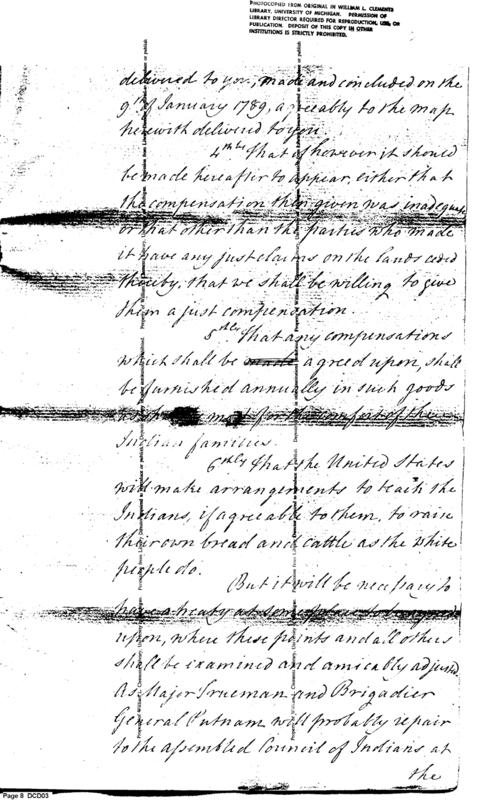 PHOTOCOPIED FROM ORIGINAL IN WILLIAM L. CLEMENTS
LIBRARY, UNIVERSITY OF MICHIGAN. PERMISSION OF
LIBRARY DIRECTOR REQUIRED FOR REPRODUCTION, USE, OR
PUBLICATION. DEPOSIT OF THIS COPY IN OTHER
INSTITUTIONS IS STRICTLY PROHIBITED.
delivered to you, made and concluded on the
9th of January 1789, agreeably to the map
herewith delivered to you.
4thly That if however it should
be made hereafter to appear, either that
the compensation then given was inadequate
or that other than the parties who made
it have any just claims on the lands ceded
thereby, that we shall be willing to give
them a just compensation.
5thly That any compensations
which shall be made agreed upon, shall
be furnished annually in such goods
for the comfort of the
Indian families.
6thly That the United States
will make arrangements to teach the
Indians, if agreeable to them, to raise
their own bread and cattle as the white
people do.
But it will be necessary to
have a treaty at some place to be agreed
upon, where these points and all others
shall be examined and amicably adjusted
As Major Trueman and Brigadier
General Putnam will probably repair
to the assembled Council of Indians at
the
Page 8 DCD03